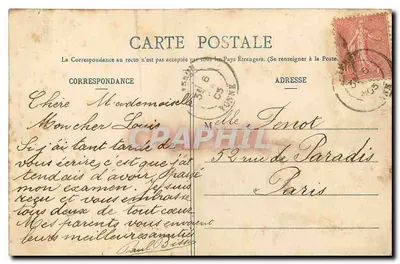 CARTE POSTALE
La Correspondance au recto n'est pas acceptée par tous les Pays Étrangers. (Se renseigner à la Poste
CORRESPONDANCE
ADRESSE
Chère Mademoiselle
Mon cher Louis
Si j'ai tant tardé de
vous écrire, c'est que j'at
tendais d'avoir passé
mon examen. Je suis
reçu et vous embrasse
tous deux de tout cœur
Mes parents vous envoient
leurs meilleures amitiés
Paul
Melle Jenot
52 rue de Paradis
Paris
YONNE
CPAPHIL